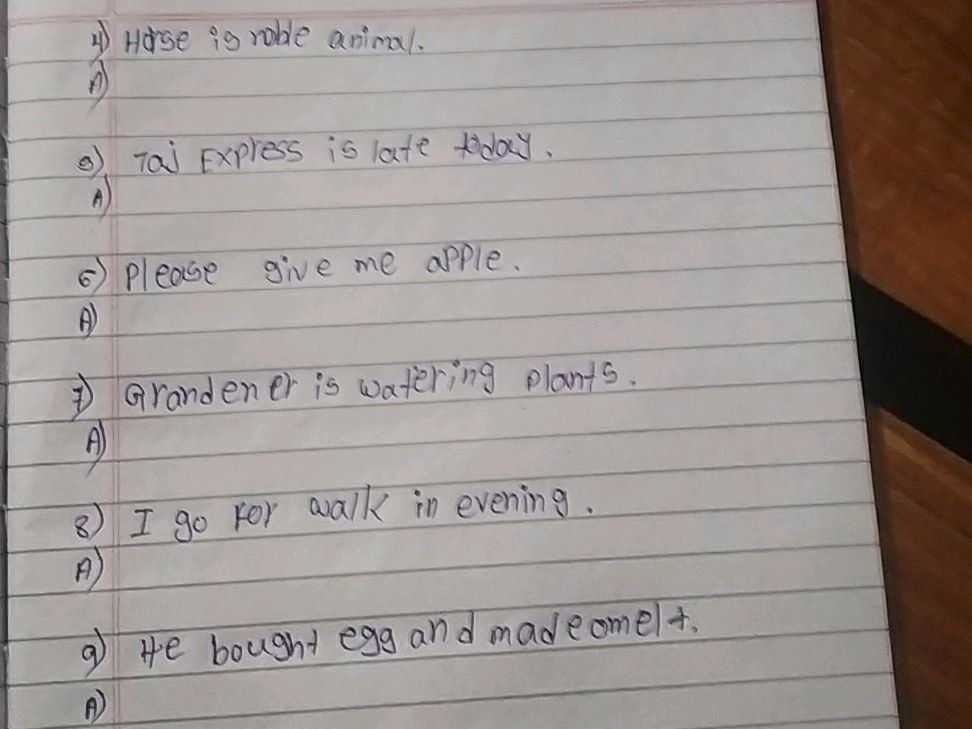 4) Horse is noble animal.
A)
5) Taj Express is late today.
A)
6) Please give me apple.
A)
7) Grandener is watering plants.
A)
8) I go for walk in evening.
A)
9) He bought egg and made omelt.
A)